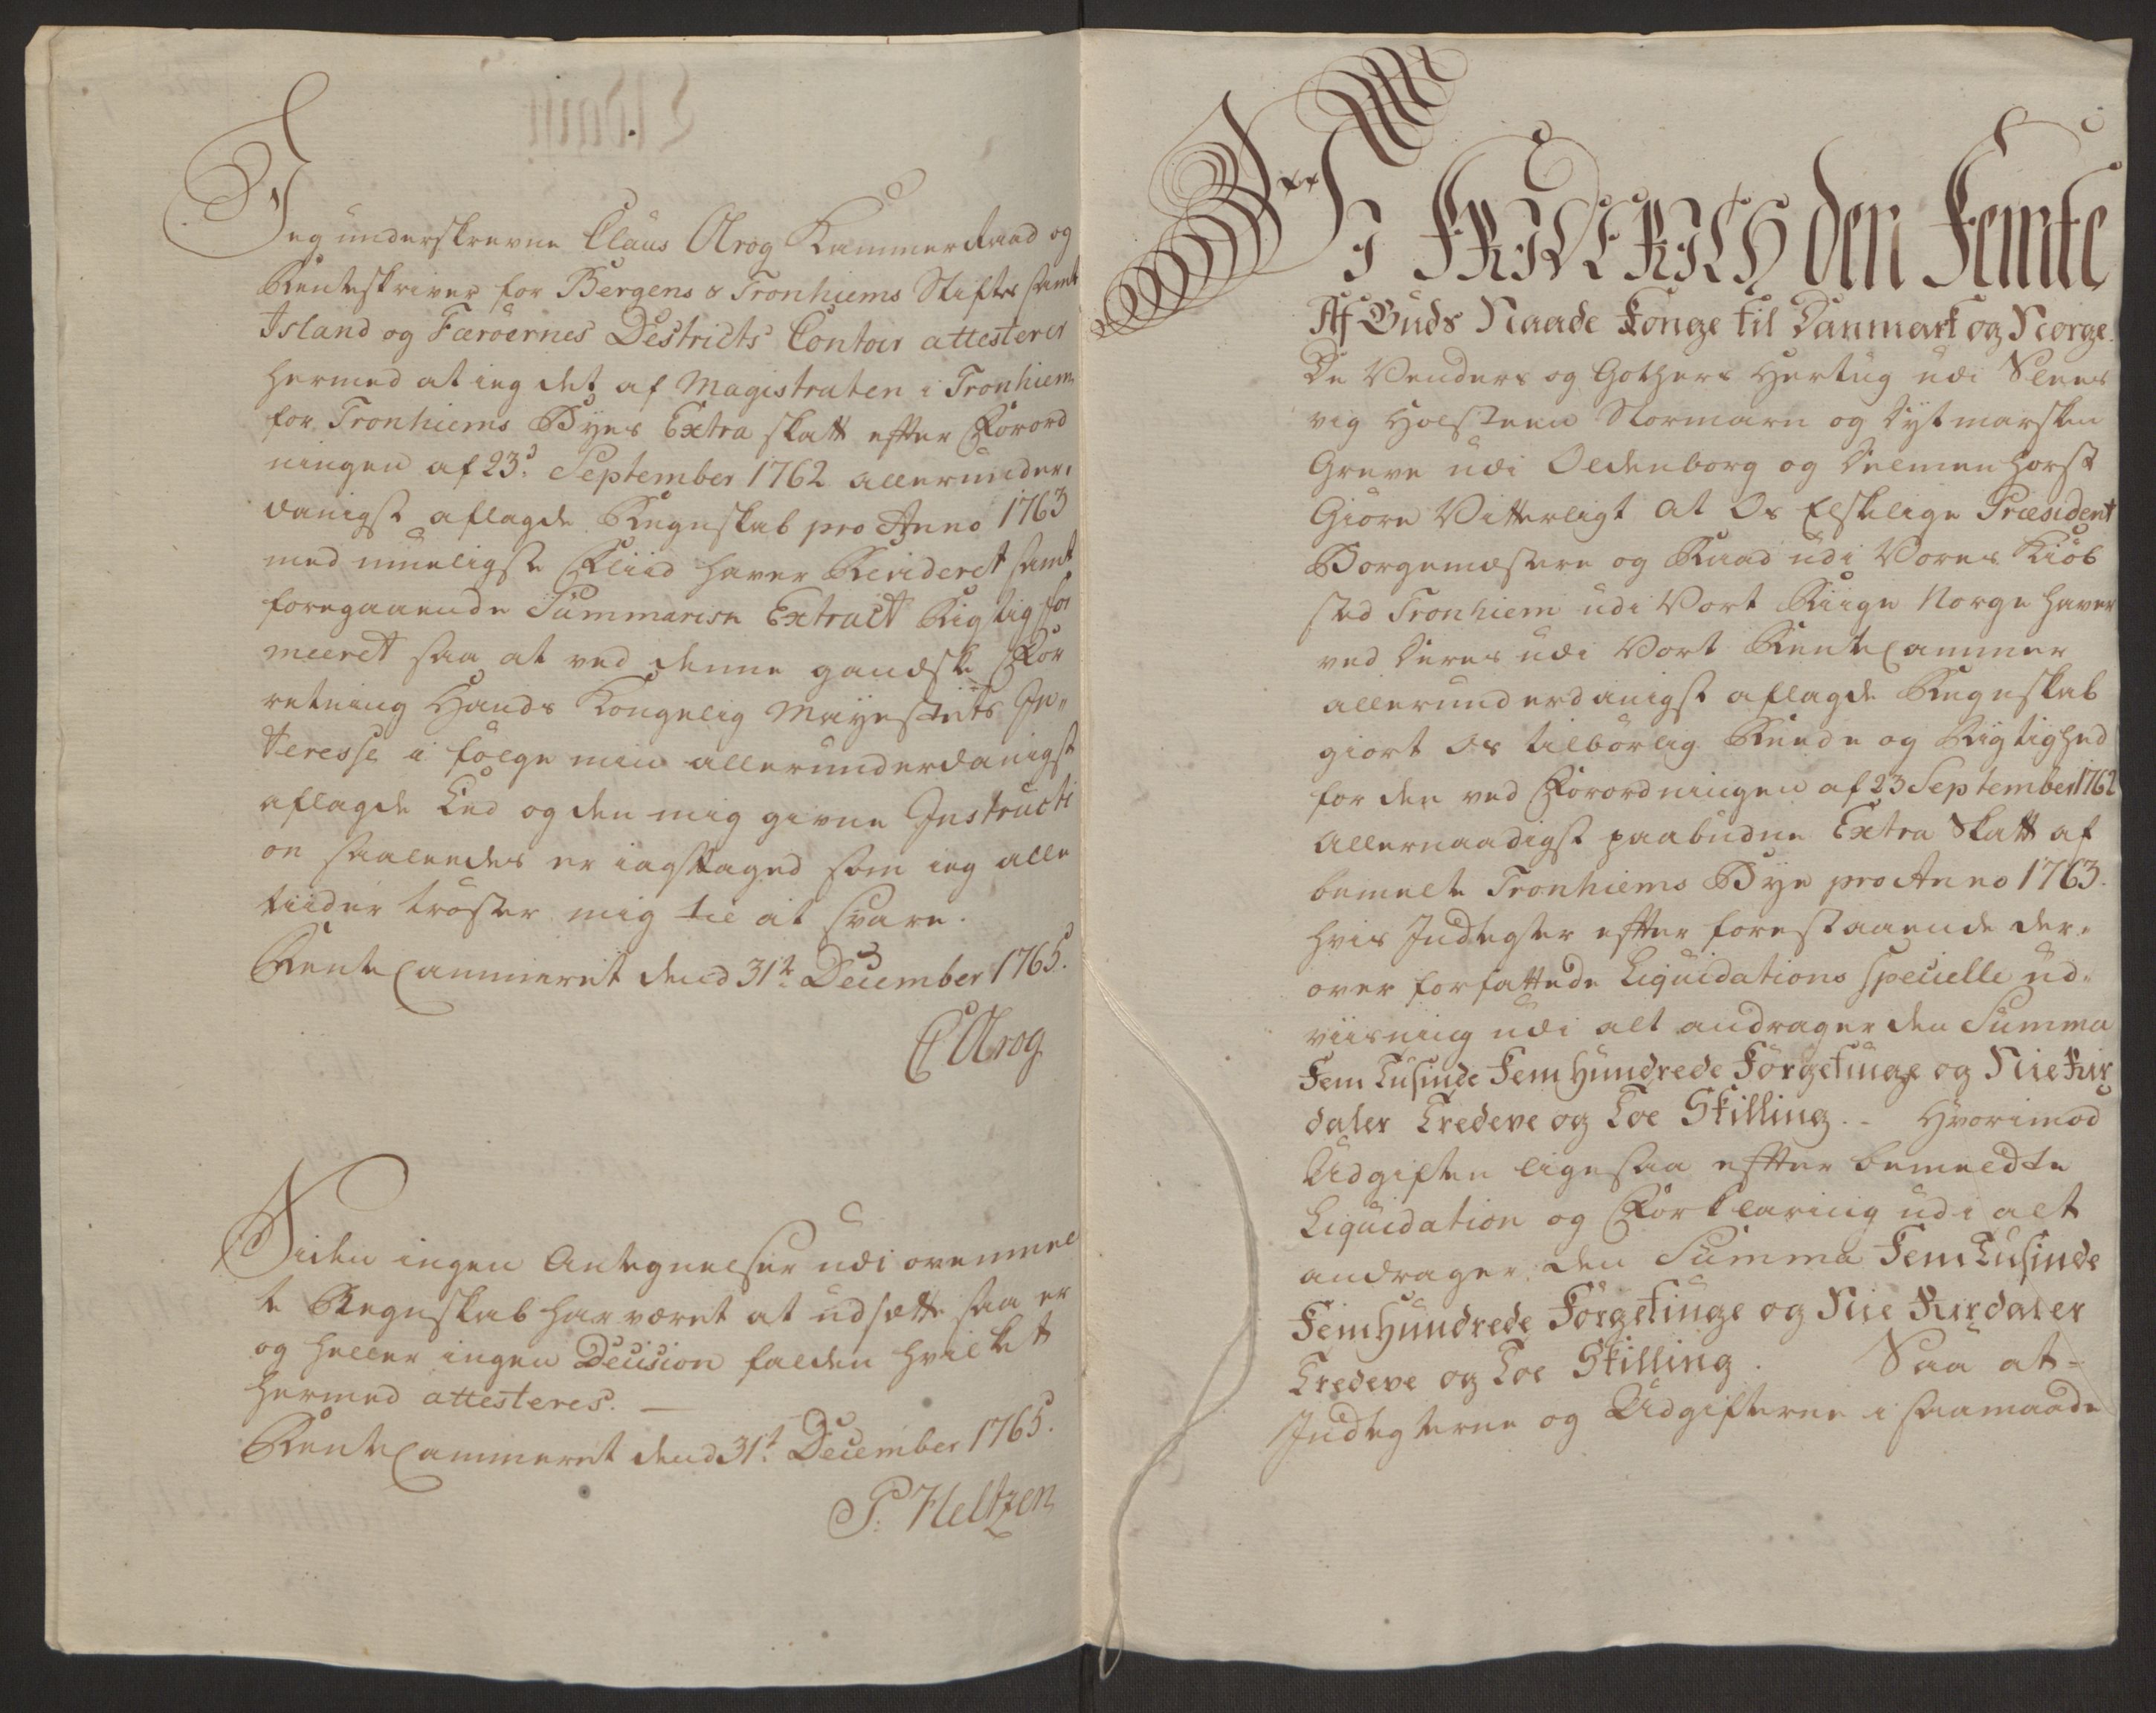 Jeg underskrevne Claus Krog Kammer Raad og
Renteskriver for Bergens & Tronhiems Stifter samt
Island og Færöernes Destricts Contoir attesterer
hermed at ieg det af Magistraten i Tronhiem
for Tronhiems Byes Extra skatt efter Forord
ningen af 23d. September 1762 allerunder,
danigst aflagde Regnskab pro Anno 1763
med mueligste Fliid haver Revideret samt
foregaaende Summariske Extract Rigtig for
meeret saa at ved denne gandske For
retning Hands Kongelig Mayestæts In„
teresse i følge min allerunderdanigst
aflagde Eed og den mig givne Instructi
on saaledes er iagttaged som ieg alle
tiider trøster mig til at svare.
RenteCammeret dend 31te December 1765.
C Krog
Siden ingen Antegnelser udi ovenmel
te Regnskab har været at udsætte saa er
og heller ingen Decision falden hvilket
hermed attesteres. —
RenteCammeret dend 31t. December 1765.
P. Heltzen
Wi FRIDERICH den Femte
Af Guds Naade Konge til Danmark og Norge
De Venders og Gothers Hertug udi Slees
vig Holsteen Stormarn og Dytmarsken
Greve udi Oldenborg og Delmenhorst
Giöre Vitterligt at Os Elskelige Præsident
Borgemestere og Raad udi Vores Kiöb
sted Tronhiem udi Vort Riige Norge haver
ved Deres udi Vort RenteCammer
allerunderdanigst aflagde Regnskab
giort Os tilbörlig Reede og Rigtighed
for den ved Forordningen af 23 September 1762
Allernaadigst paabudne Extra Skatt af
bemelte Tronhiems Bye pro Anno 1763.
hvis Indtegter efter forestaaende der„
over forfattede Liquidations specielle ud„
viisning udi alt andrager den Summa
Fem Tusinde Fem Hundrede Förgetiuge og Nie Rix
daler Tredeve og Toe Skilling. - Hvorimod
Udgiften ligesaa efter bemeldte
Liquidation og Forklaring udi alt
andrager den Summa Fem Tusinde
Fem Hundrede Förgetiuge og Nie Rixdaler
Tredeve og Toe Skilling. Saa at-
Indtegterne og Udgifterne i saamaade